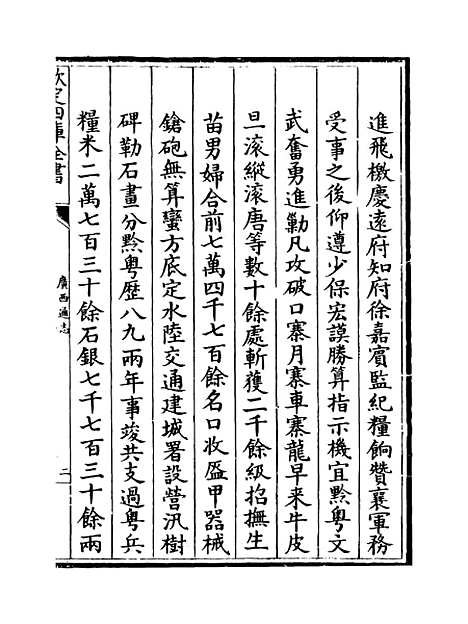 進飛檄慶遠府知府徐嘉賔監紀糧餉贊襄軍務
受事之後仰遵少保宏謨勝算指示機宜黔粤文
武奮勇進勦凡攻破口寨月寨車寨龍早来牛皮
旦滚縱滚唐等數十餘處斬獲二千餘級招撫生
苗男婦合前七萬四千七百餘名口收盔甲器械
鎗砲無算蠻方底定水陸交通建城署設營汛樹
碑勒石畫分黔粤歴八九兩年事竣共支過粤兵
糧米二萬七百三十餘石銀七千七百三十餘兩
欽定四庫全書
廣西通志
二